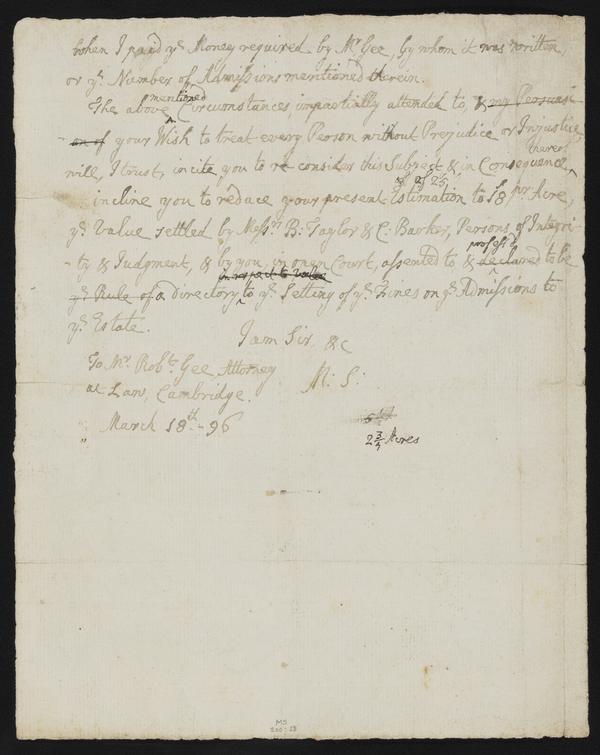 when I paid yͤ Money required by Mʳ Gee, by whom it was written,
or yͤ Number of Admissions mentioned therein.
The above mentioned Circumstances, impartially attended to, & my Persuasi-
-on of your Wish to treat every Person without Prejudice or Injustice,
will, I trust, incite you to re-consider this Subject &, in Consequence thereof,
incline you to reduce your present Estimation of 25ˢ to 18ˢ pʳ Acre,
yͤ Value settled by Messʳˢ B: Taylor & C: Barker, Persons of Integri-
-ty & Judgment, & by you, in open Court, assented to & declared profess'd to be
in respect to Value
yͤ Rule of a directory to yͤ Setting of yͤ Fines on yͤ Admissions to
yͤ Estate.
I am Sir, &c
To Mʳ Robᵗ Gee Attorney
M: S:
at Law, Cambridge.
March 18ᵗʰ - 96
2 3/4 Acres
MS